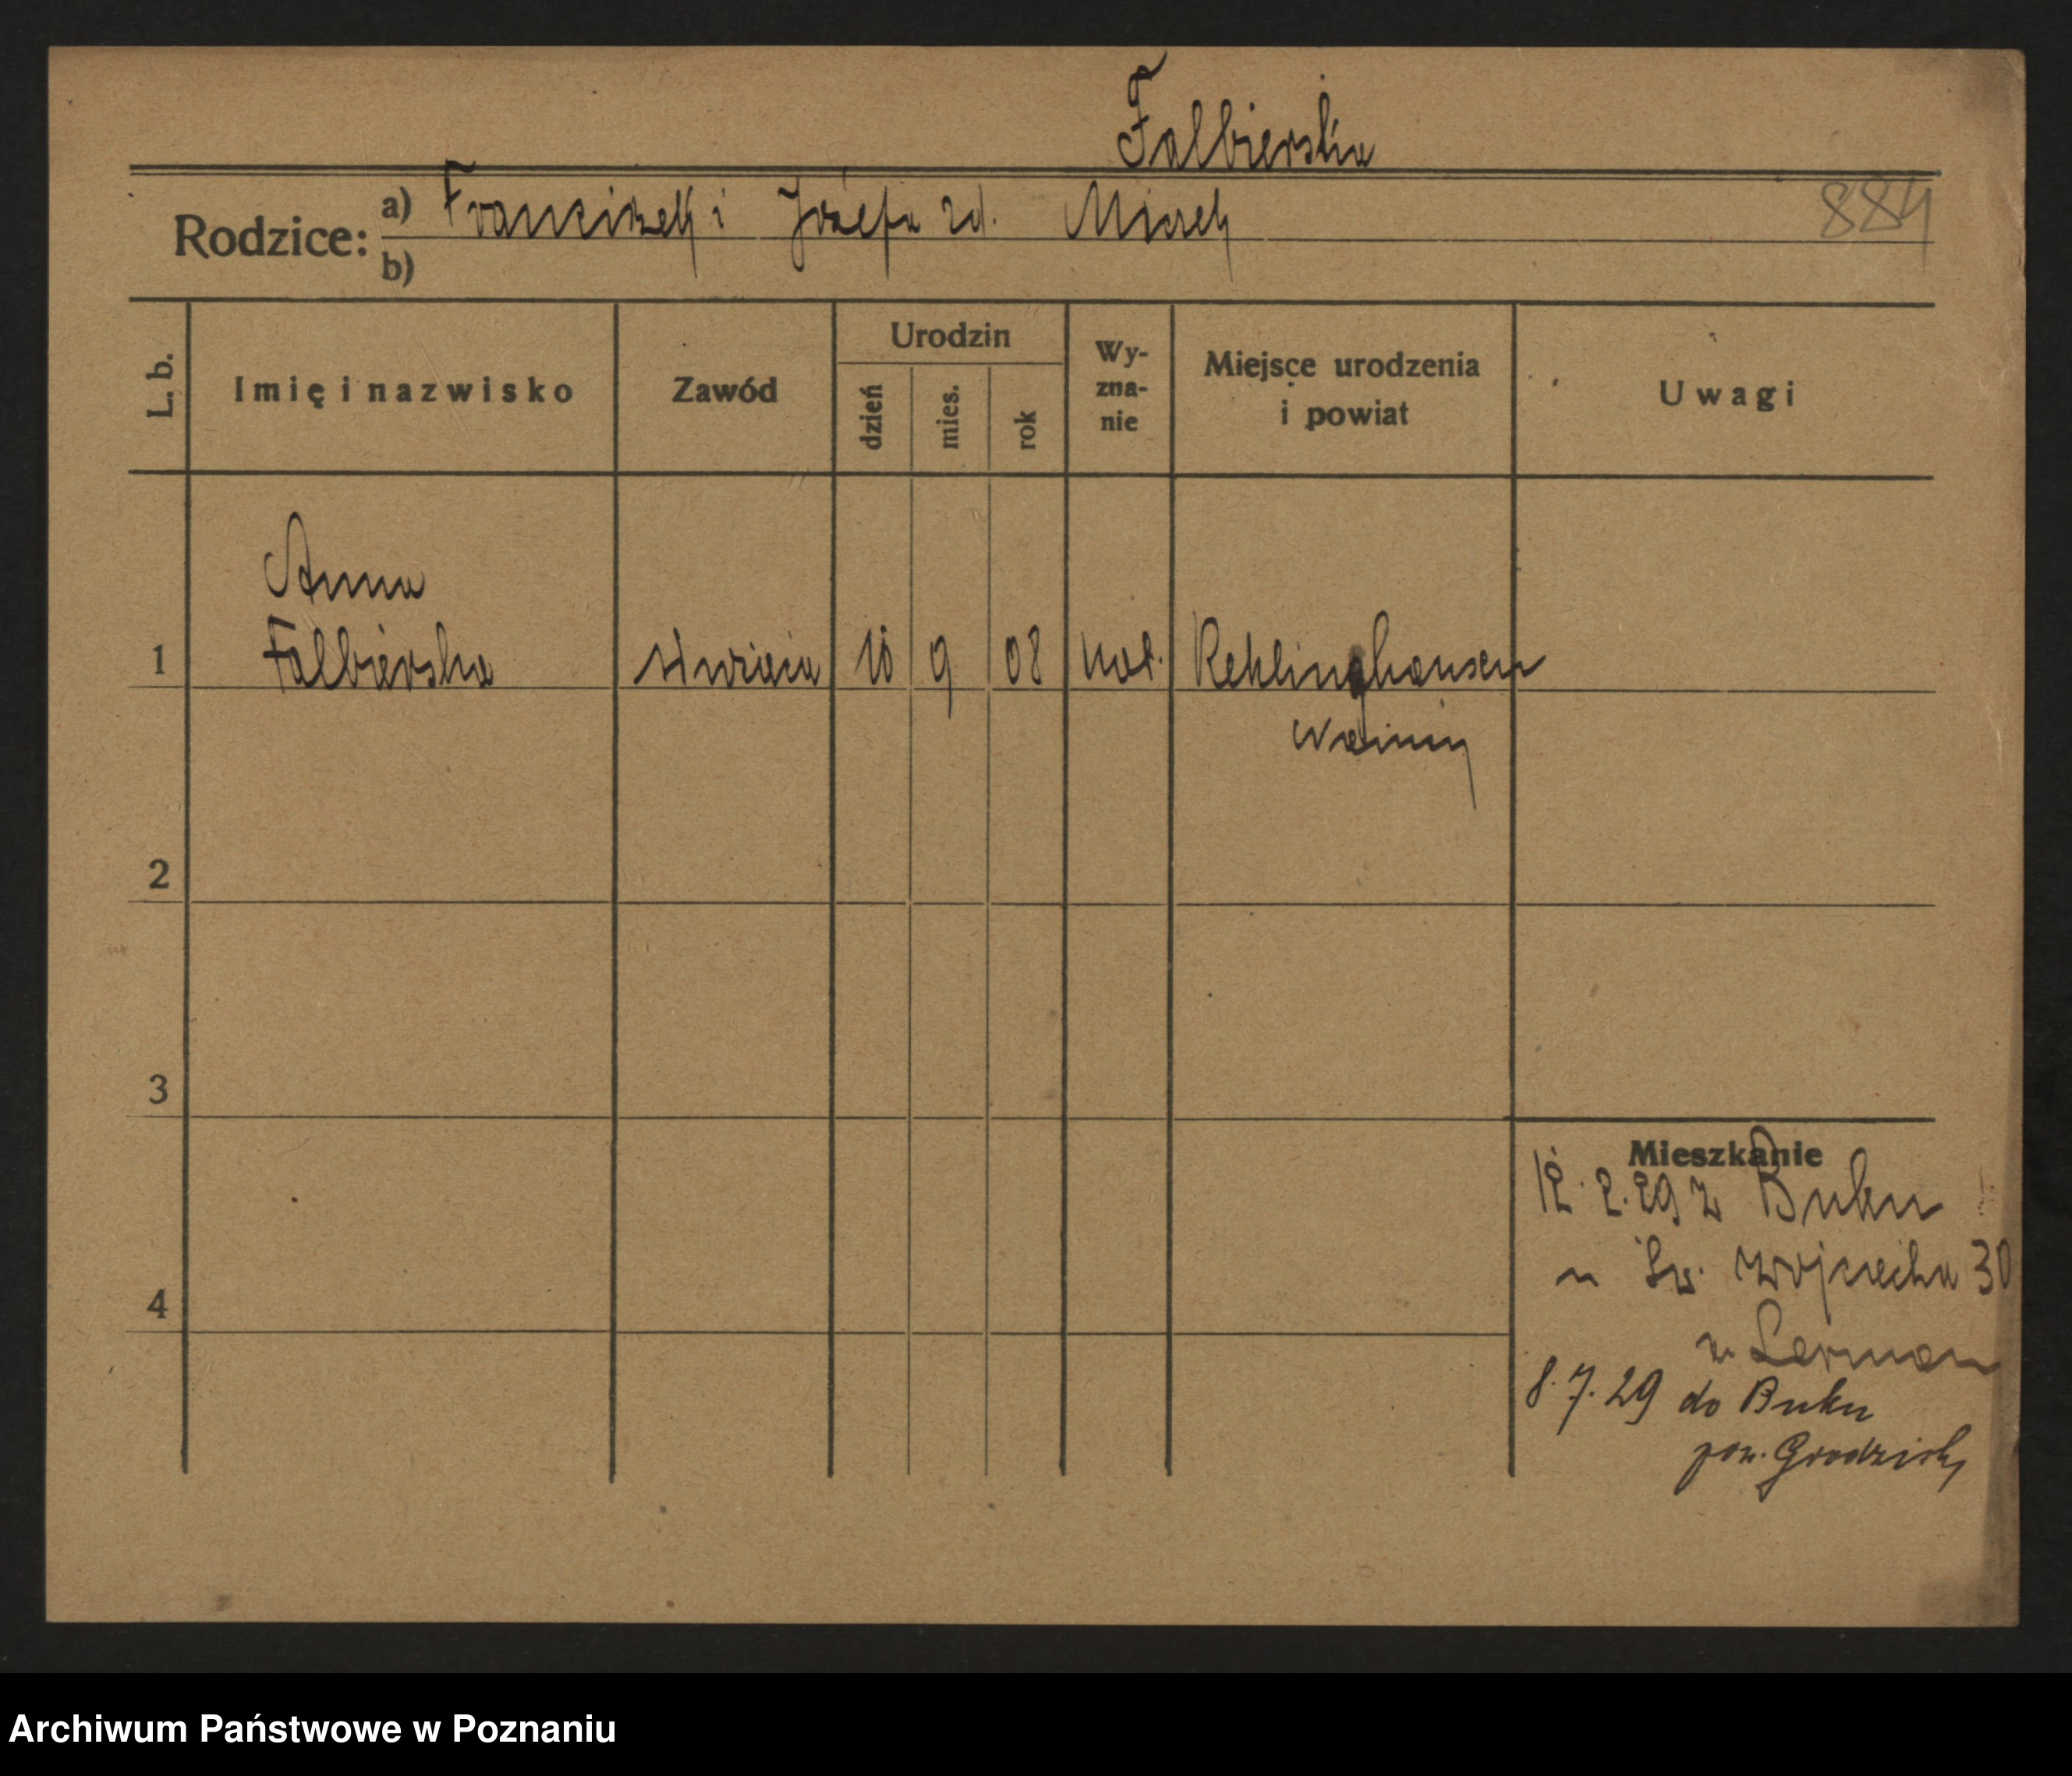 Falbierska
Rodzice: a) Franciszek i Józefa zd. Misiek
884
b)
L. b.
Imię i nazwisko
Zawód
Urodzin
dzień
mies.
rok
Wy-
zna-
nie
Miejsce urodzenia
i powiat
Uwagi
Anna
1 Falbierska służąca 10 9 08 kat. Reklinghausen
2
3
4
Mieszkanie
12. 2. 29 z Buku
Św. Wojciecha 30
u Lerman
8. 7. 29 do Buku
pow. Grodzisk
Archiwum Państwowe w Poznaniu